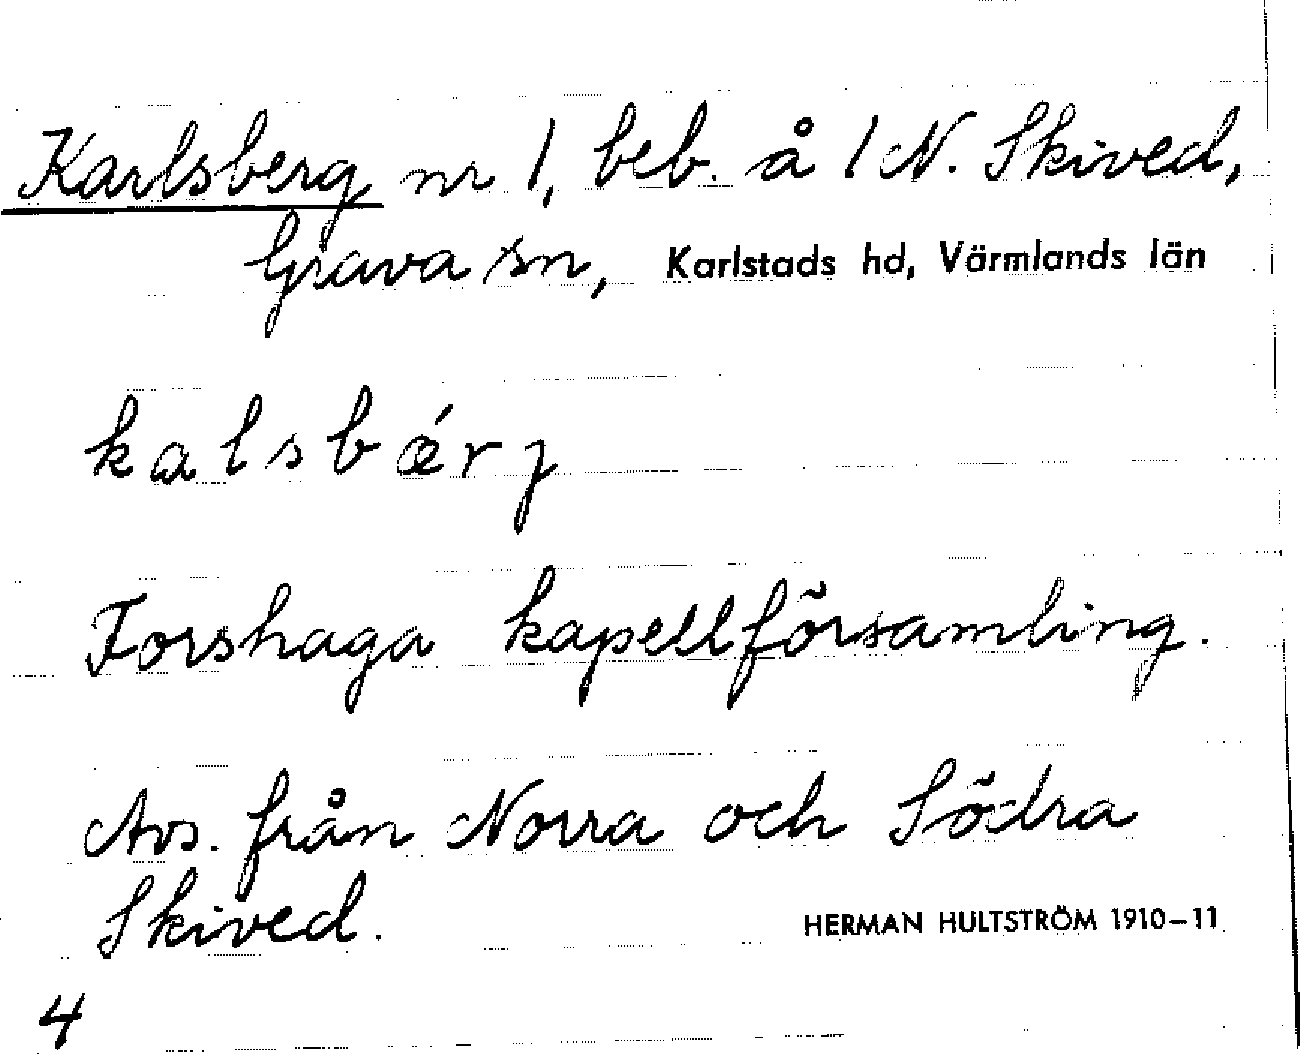 Karlsberg nr 1, beb. å 1 N. Skived,
Grava sn, Karlstads hd, Värmlands län
kalsbǽrj
Forshaga kapellförsamling.
Avs. från Norra och Södra
Skived.
HERMAN HULTSTRÖM 1910–11
4